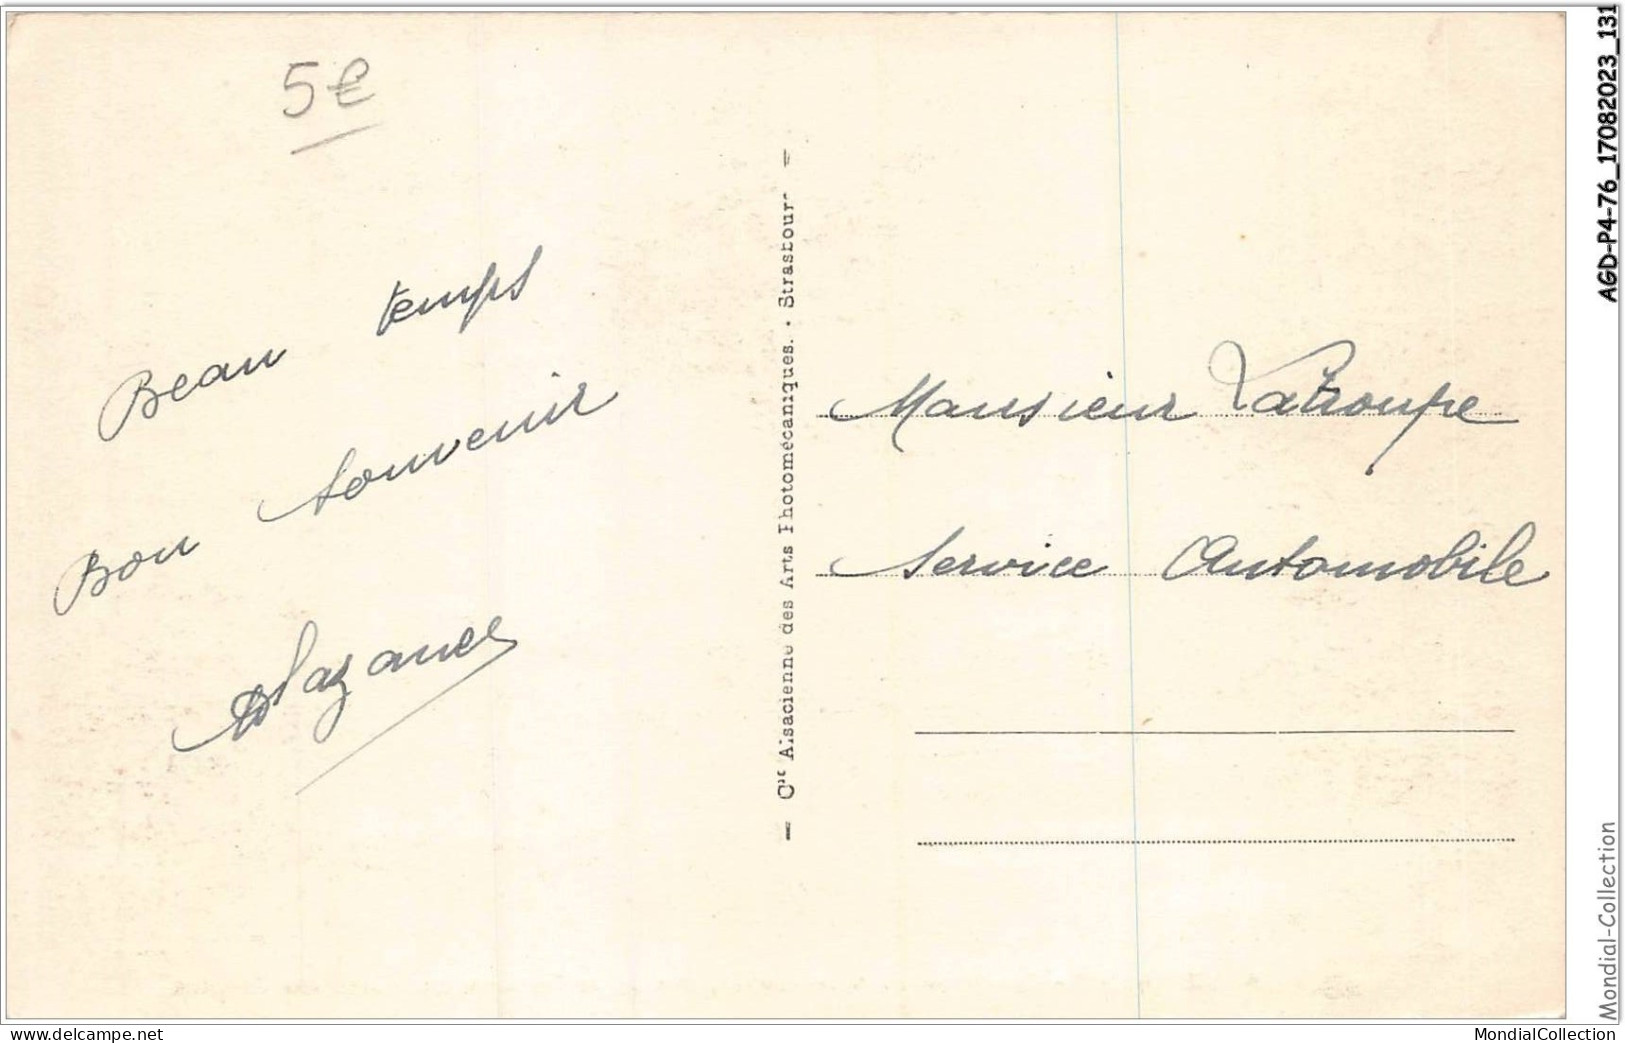 5€
Beau temps
Bon souvenir
— Cie Alsacienne des Arts Photomécaniques. - Strasbourg —
Monsieur Latroupe
Service Automobile
AGD-P4-76_17082023_131
Mondial-Collection
www.delcampe.net
MondialCollection